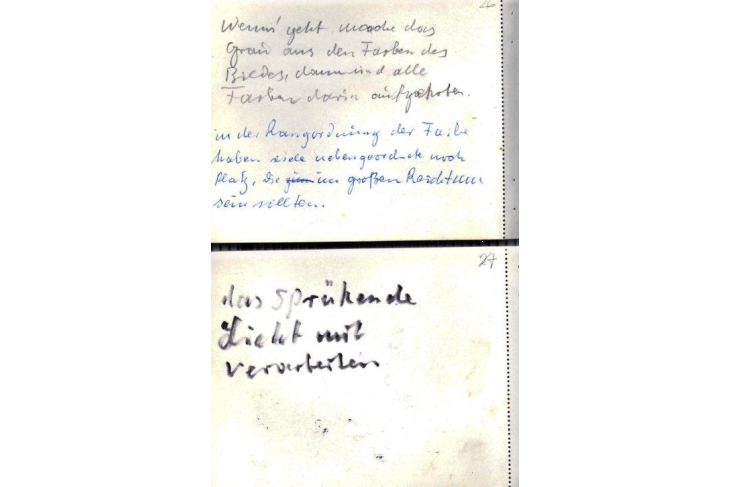 26
Wenns geht mache das
Grau aus den Farben des
Bildes, dann sind alle
Farben darin aufgehoben.
in der Rangordnung der Farbe
haben viele nebengeordnete noch
Platz, die im großen Reichtum
sein sollten.
27
das sprühende
Licht mit
verarbeiten